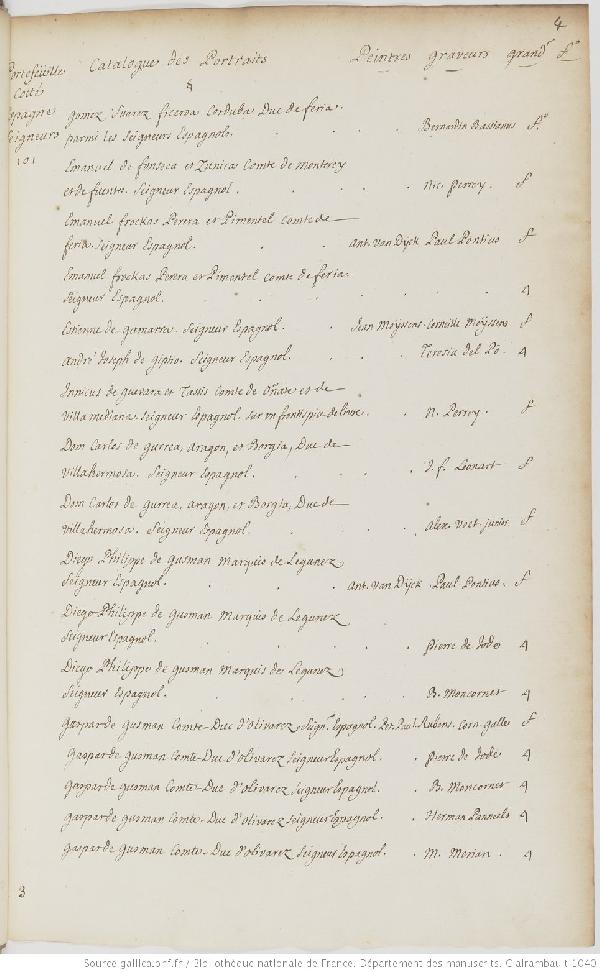 4
Portefeuille Catalogue des Portraits Peintres graveurs grandr fo
cotté
Espagne gomez Suarez ficeroa Corduba Duc de feria.
Seigneurs parmi les Seigneurs Espagnols. Bernardin Bassanus fo
101
Emanuel de fonseca et Zunicas Comte de monterey
et de fuente. Seigneur Espagnol. Nic. perrey. f
Emanuel frockas Perera et Pimentel comte de
feria Seigneur Espagnol. Ant. Van Dijck Paul Pontius f
Emanuel frockas Perera et Pimentel comte de feria
Seigneur Espagnol. 4
Estienne de gamarra. Seigneur Espagnol. Jean Meyssens. Corneille Meyssens f
André Joseph de Sipho. Seigneur Espagnol. Teresia del Pô. 4
Innicus de guevara et Tassis Comte de Oñate et de
Villamediana. Seigneur Espagnol. sur un frontispice de livre. N. Perrey. f
Dom Carlos de gurrea, aragon, et Borgia, Duc de
Villahermosa. Seigneur Espagnol. J. f. Leonart f
Dom Carlos de gurrea, aragon, et Borgia, Duc de
Villahermosa. Seigneur Espagnol. alex. Voet junior f
Diego Philippe de gusman Marquis de Leganez
Seigneur Espagnol. Ant. Van Dijck. Paul Pontius. f
Diego Philippe de gusman Marquis de Leganez
Seigneur Espagnol. pierre de Jode 4
Diego Philippe de gusman Marquis de Leganez
Seigneur Espagnol. B. Moncornet 4
Gaspar de gusman Comte-Duc d'olivarez, Seignr Espagnol. Pet. Paul Rubens. Corn. galle f
Gaspar de gusman Comte-Duc d'olivarez Seigneur Espagnol. pierre de Jode 4
Gaspar de gusman Comte-Duc d'olivarez Seigneur Espagnol. B. Moncornet 4
Gaspar de gusman Comte-Duc d'olivarez Seigneur Espagnol. Herman Panneels 4
Gaspar de gusman Comte-Duc d'olivarez Seigneur Espagnol. M. Merian. 4
3
Source gallica.bnf.fr / Bibliothèque nationale de France. Département des manuscrits. Clairambault 1040